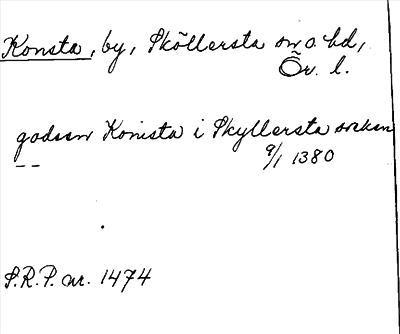 Konsta, by, Sköllersta sn o. hd,
Ör. l.
godsen Konista i Skyllersta soken
9/1 1380
S.R.P. nr. 1474